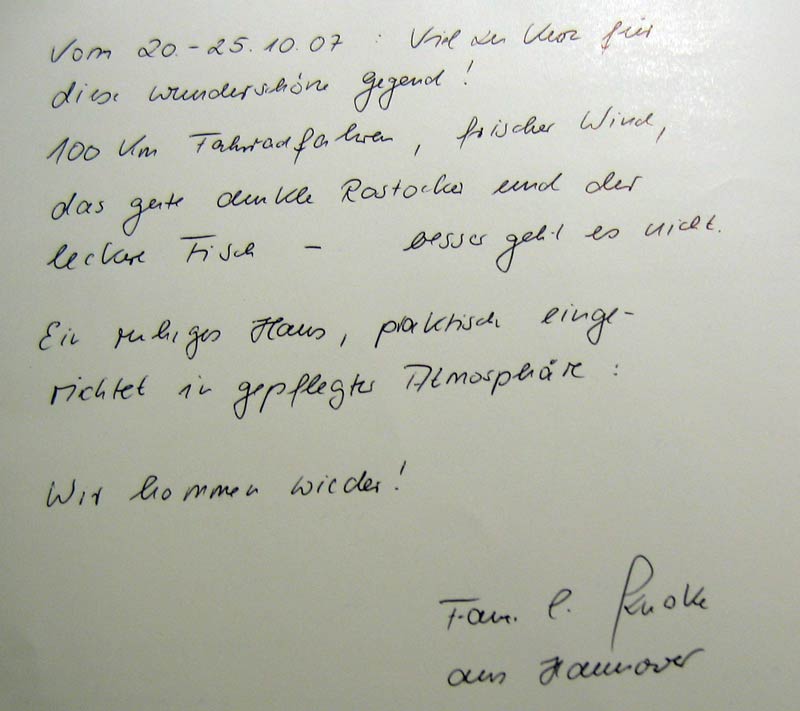 Vom 20.-25.10.07 : Viel zu kurz für
diese wunderschöne gegend!
100 km Fahrradfahren, frischer Wind,
das gute dunkle Rostocker und der
leckere Fisch – besser geht es nicht.
Ein ruhiges Haus, praktisch einge-
richtet in gepflegter Atmosphäre :
Wir kommen wieder!
Fam. C.
aus Hannover